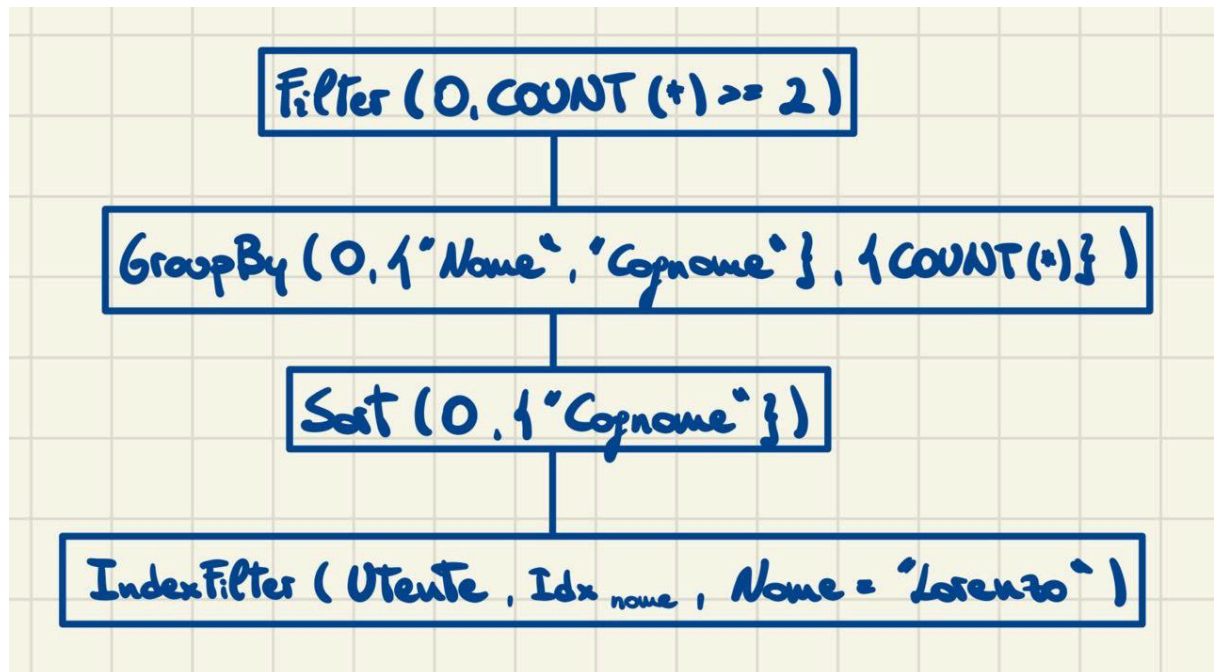 Filter (O, COUNT (*) >= 2)
GroupBy (O, {"Nome", "Cognome"}, {COUNT(*)})
Sort (O, {"Cognome"})
IndexFilter (Utente, Idx nome, Nome = "Lorenzo")